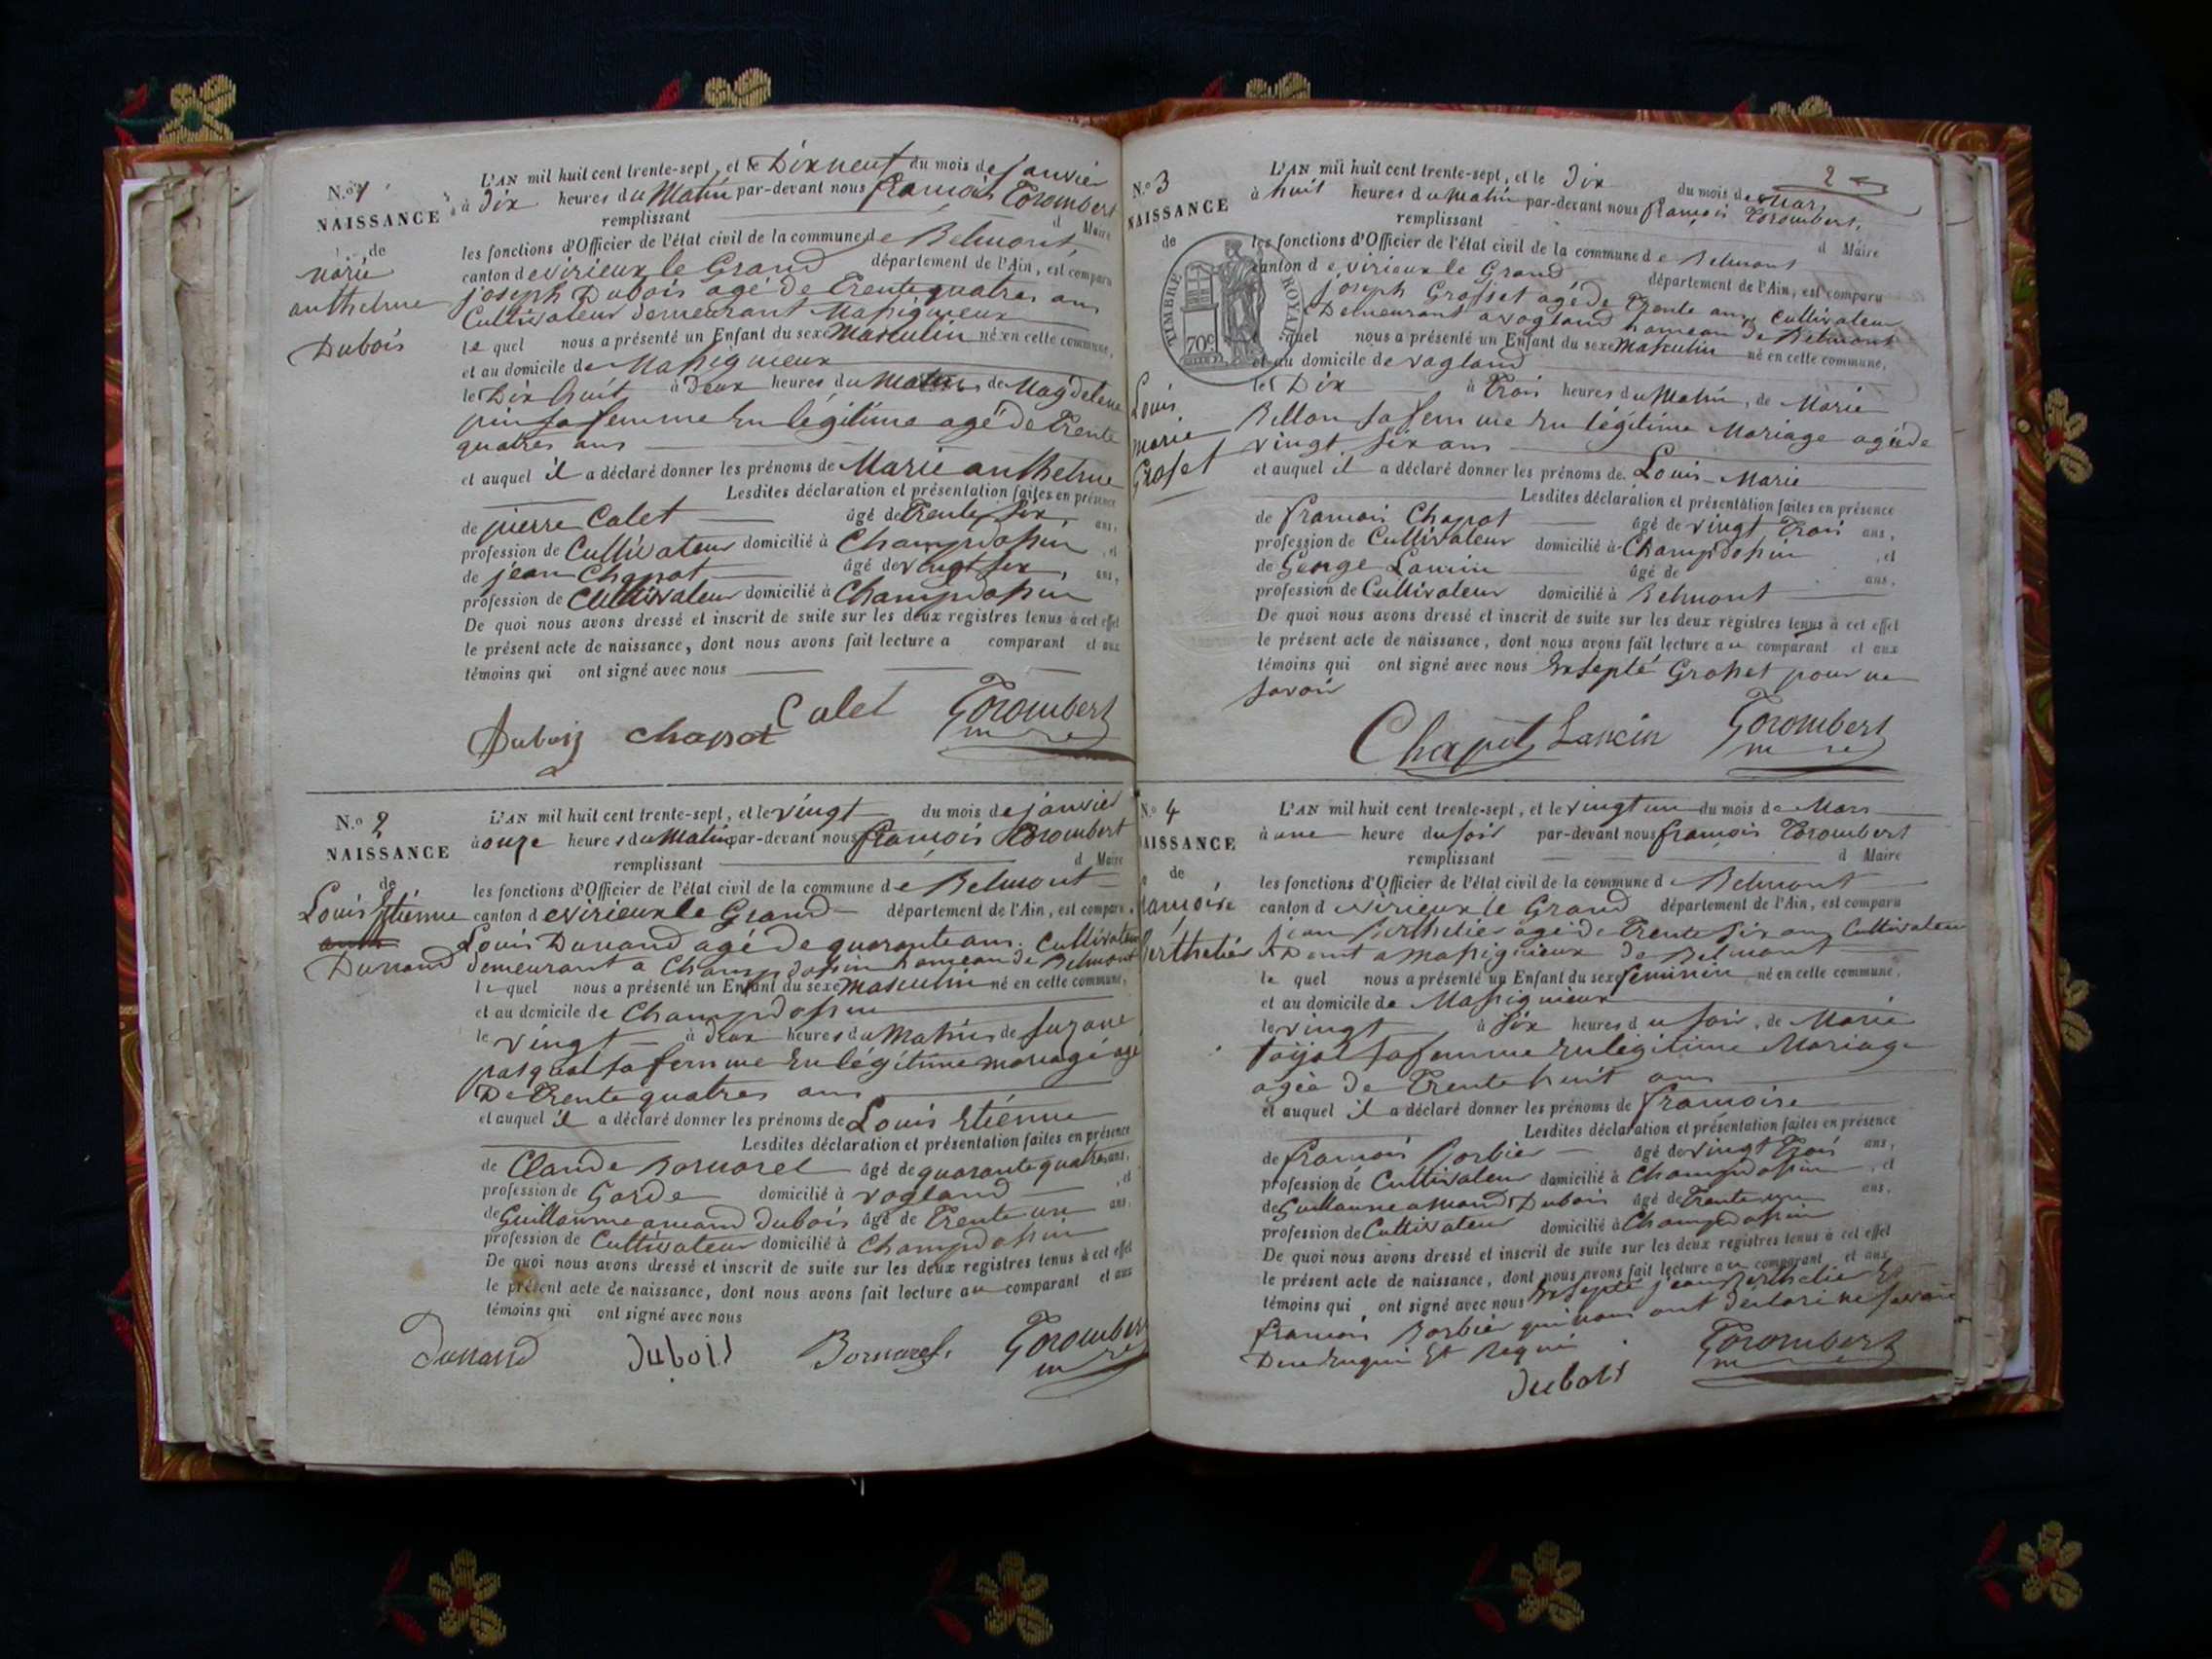 N.o 1
NAISSANCE
de
Marie
anthelme
Dubois
L'AN mil huit cent trente-sept, et le Dix neuf du mois de janvier
à Dix heures du Matin par-devant nous françois Corombert
remplissant d Maire
les fonctions d'Officier de l'état civil de la commune de Belmont
canton de virieux le Grand département de l'Ain, est comparu
joseph Dubois agé de Trente quatres ans
Cultivateur demeurant Massignieux
le quel nous a présenté un Enfant du sexe Masculin né en cette commune,
et au domicile de Massignieux
le Dix huit à Deux heures du Matin de Magdeleine
sa femme En légitime agé de Trente
quatres ans
et auquel il a déclaré donner les prénoms de Marie anthelme
Lesdites déclaration et présentation faites en présence
de pierre Calet âgé de Trente Six ans,
profession de Cultivateur domicilié à Champdossin, et
de jean Chapot âgé de vingt six, ans,
profession de Cultivateur domicilié à Champdossin
De quoi nous avons dressé et inscrit de suite sur les deux registres tenus à cet effet
le présent acte de naissance, dont nous avons fait lecture a comparant et aux
témoins qui ont signé avec nous
Dubois chapot Calet Corombert
N.o 2
NAISSANCE
de
Louis Etienne
Dunand
L'AN mil huit cent trente-sept, et le vingt du mois de janvier
à onze heures du Matin par-devant nous françois Corombert
remplissant d Maire
les fonctions d'Officier de l'état civil de la commune de Belmont
canton de virieux le Grand département de l'Ain, est comparu
Louis Dunand agé de quarante ans Cultivateur
demeurant a Champdossin hameau de Belmont
le quel nous a présenté un Enfant du sexe Masculin né en cette commune,
et au domicile de Champdossin
le vingt à Deux heures du Matin de Suzane
pasqual sa femme En légitime mariage agé
De Trente quatres ans
et auquel il a déclaré donner les prénoms de Louis Etienne
Lesdites déclaration et présentation faites en présence
de Claude Bornarel âgé de quarante quatres ans,
profession de Garde domicilié à vogland, et
de Guillaume amand Dubois âgé de Trente un ans,
profession de Cultivateur domicilié à Champdossin
De quoi nous avons dressé et inscrit de suite sur les deux registres tenus à cet effet
le présent acte de naissance, dont nous avons fait lecture au comparant et aux
témoins qui ont signé avec nous
Dunand Dubois Bornarel Corombert
2
N.o 3
NAISSANCE
de
Louis
Marie
Grosset
TIMBRE ROYAL
70c
L'AN mil huit cent trente-sept, et le Dix du mois de Mars
à huit heures du Matin par-devant nous françois Corombert,
remplissant d Maire
les fonctions d'Officier de l'état civil de la commune de Belmont
canton de virieux le Grand département de l'Ain, est comparu
joseph Grosset agé de Trente ans Cultivateur
Demeurant a vogland hameau de Belmont
quel nous a présenté un Enfant du sexe Masculin né en cette commune,
et au domicile de vogland
le Dix à Trois heures du Matin, de Marie
Billon sa femme En légitime Mariage agéde
vingt six ans
et auquel il a déclaré donner les prénoms de Louis Marie
Lesdites déclaration et présentation faites en présence
de françois Chapot âgé de vingt Trois ans,
profession de Cultivateur domicilié à Champdossin, et
de George Lancin âgé de ans,
profession de Cultivateur domicilié à Belmont
De quoi nous avons dressé et inscrit de suite sur les deux registres tenus à cet effet
le présent acte de naissance, dont nous avons fait lecture au comparant et aux
témoins qui ont signé avec nous Exsepté Grosset pour ne
savoir
Chapot Lancin Corombert
N.o 4
NAISSANCE
de
françoise
Berthelier
L'AN mil huit cent trente-sept, et le vingt un du mois de Mars
à une heure du soir par-devant nous françois Corombert
remplissant d Maire
les fonctions d'Officier de l'état civil de la commune d Belmont
canton d virieux le Grand département de l'Ain, est comparu
jean Berthelier agé de Trente Six ans Cultivateur
a Massignieux de Belmont
le quel nous a présenté un Enfant du sexe feminin né en cette commune,
et au domicile de Massignieux
le vingt à Six heures du soir, de Marie
sa femme En légitime Mariage
agéa de Trente huit ans
et auquel il a déclaré donner les prénoms de françoise
Lesdites déclaration et présentation faites en présence
de françois Borbier âgé de vingt Trois ans,
profession de Cultivateur domicilié à Champdossin, et
de Guillaume amand Dubois âgé de Trente un ans,
profession de Cultivateur domicilié à Champdossin
De quoi nous avons dressé et inscrit de suite sur les deux registres tenus à cet effet
le présent acte de naissance, dont nous avons fait lecture au comparant et aux
témoins qui ont signé avec nous Exsepté jean Berthelier Et
françois Borbier qui nous ont déclaré ne savoir
De ce Enquis Et Requis
Dubois Corombert